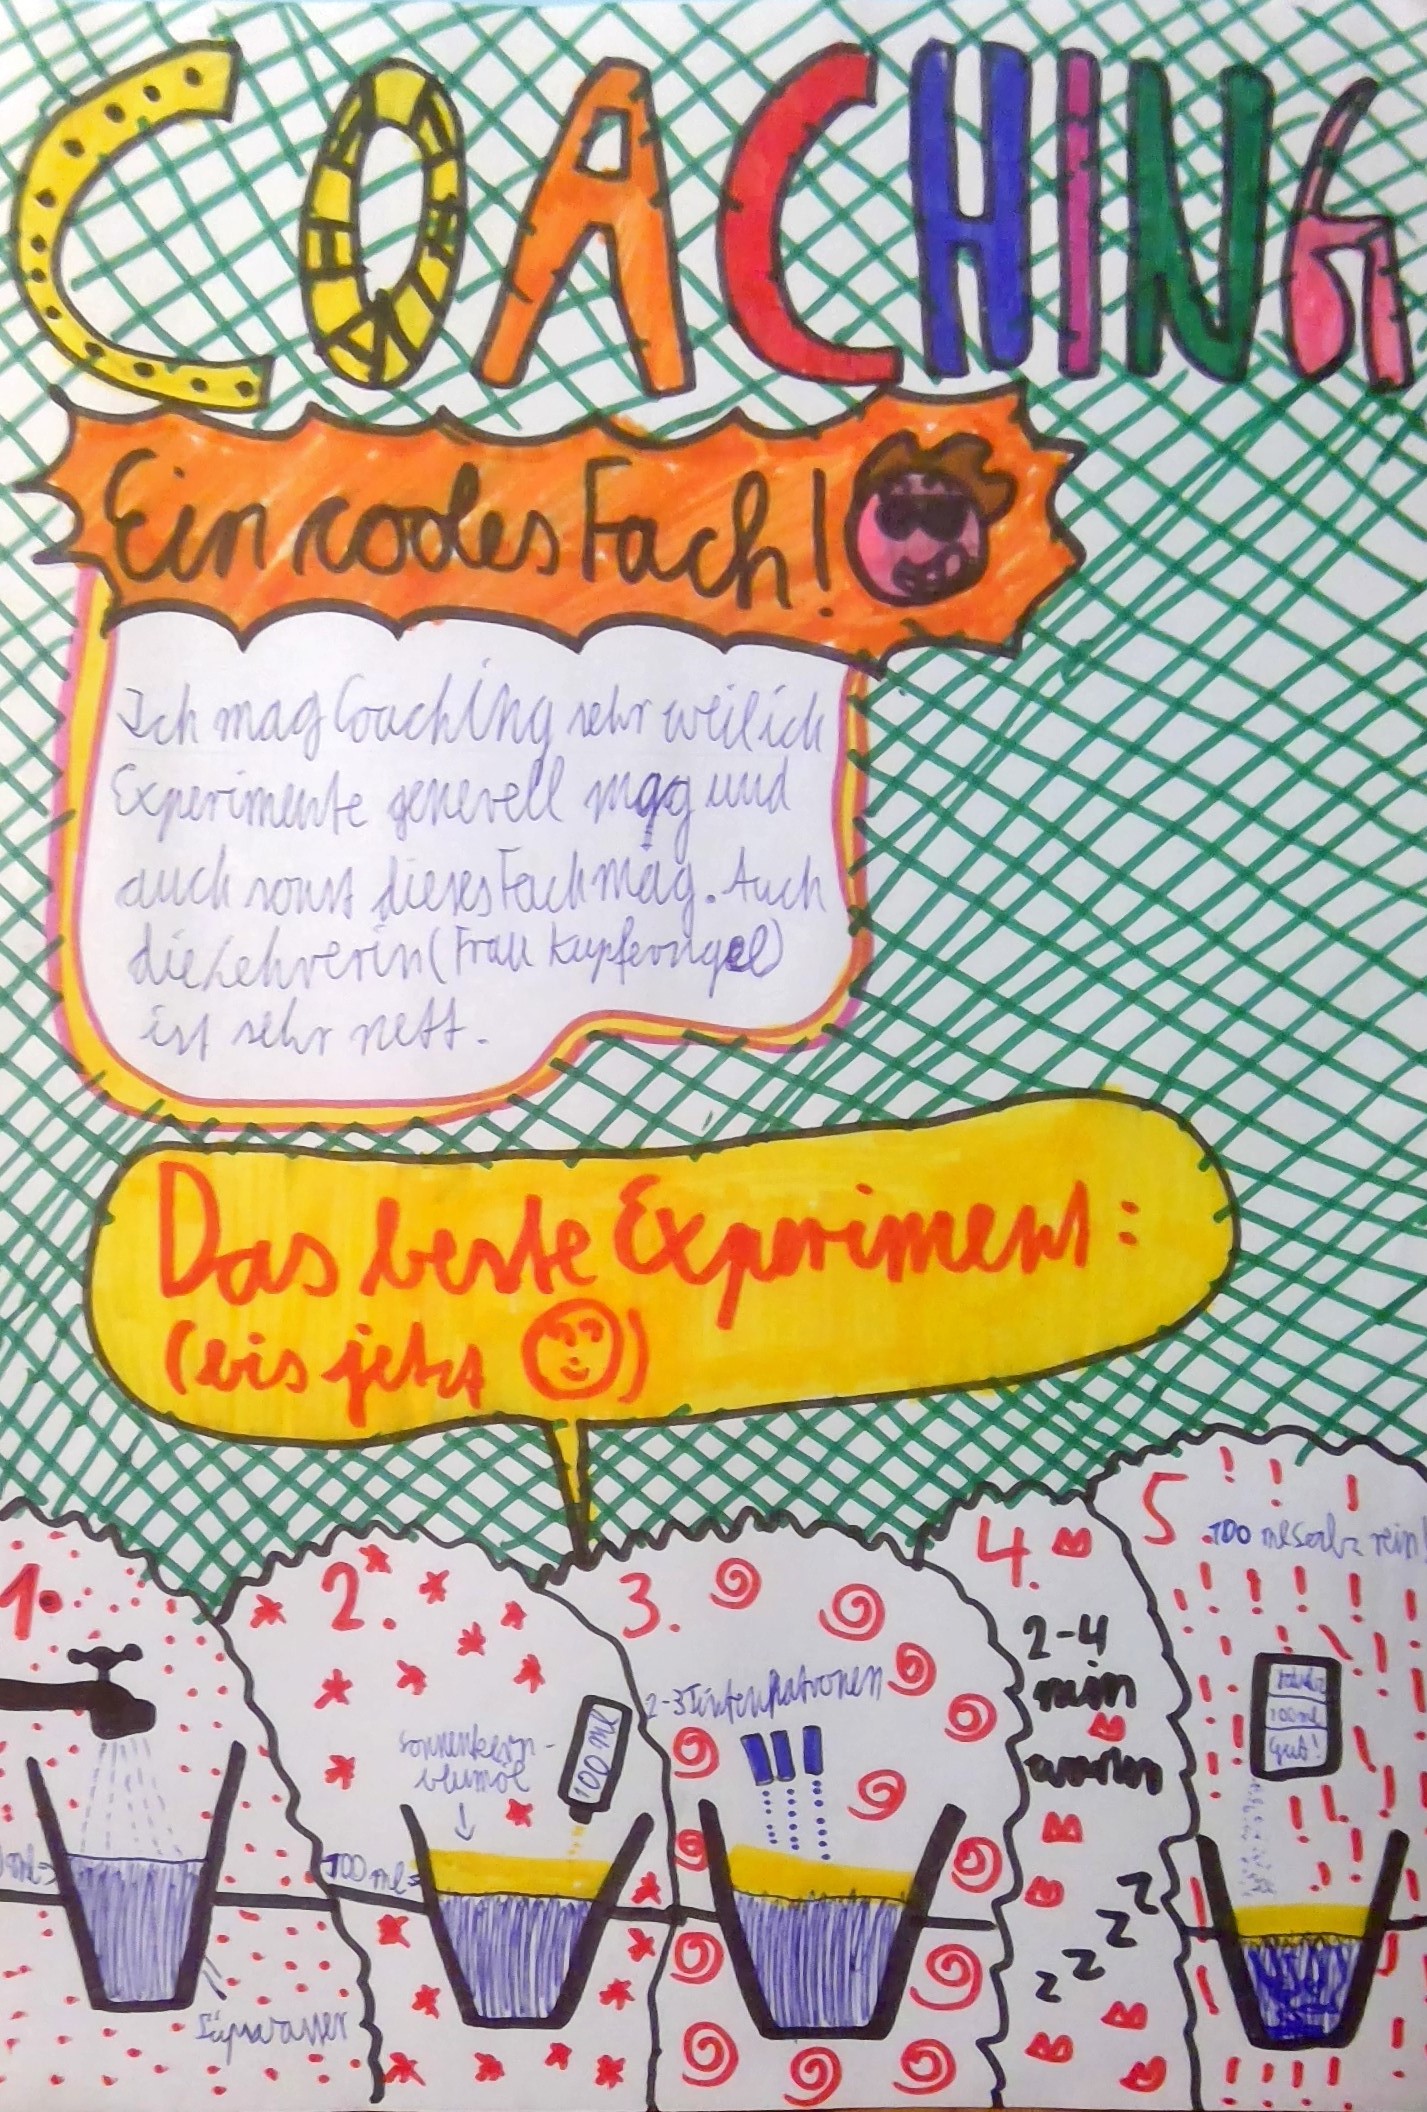 COACHING
Ein cooles Fach!
Ich mag Coaching sehr weil ich
Experimente generell mag und
auch sonst dieses Fach mag. Auch
die Lehrerin (Frau Kupferngel)
ist sehr nett.
Das beste Experiment:
(bis jetzt )
1.
ml
Süpswasser
2.
sonnenkern-
blumöl
100 ml
100 ml
3.
2-3 Tintenpatronen
4.
2-4
min
warten
z z z z
5.
100 ml Salz rein!
100 ml
Gut!